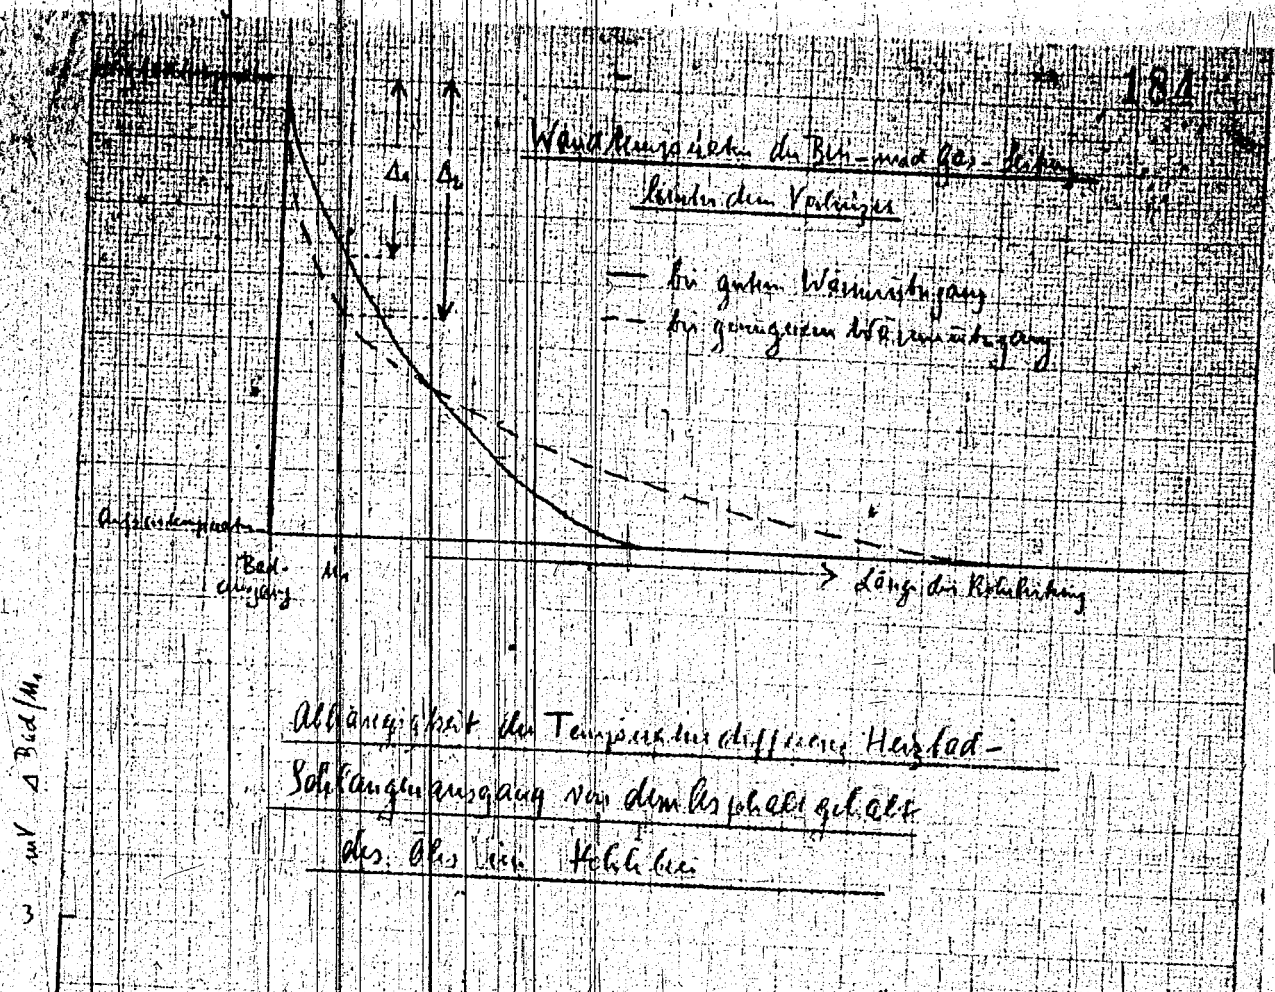 184
Wandtemperatur der Brei- und Gas-Leitung
hinter dem Vorheizer
Δ₁ Δ₂
bei gutem Wärmeübergang
bei geringerem Wärmeübergang
Aufgabetemperatur
Bad-
ausgang
M₁
Länge der Rohrleitung
Abhängigkeit der Temperaturdifferenz Heizbad-
Schlangenausgang von dem Asphaltgehalt
des Öls im
mV Δ Bad/M₁
3